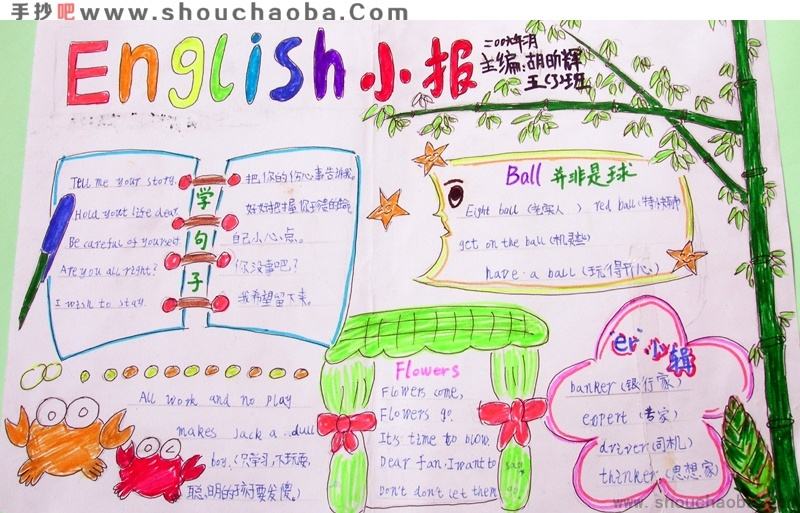 手抄吧 www.shouchaoba.com
English 小报
主编:胡昕辉
五(3)班
学句子
Tell me your story.
Hold yout life dear.
Be careful of yourself
Are you all right?
I wish to stay.
把你的伤心事告诉我。
自己小心点。
你没事吧?
我希望留下来。
Ball 并非是球
Eight ball (老实人) red ball (特快
get on the ball (机灵些)
have a ball (玩得开心)
All work and no play
makes jack a dull
boy. (只学习,不玩耍,
聪明的孩子要发傻。)
Flowers
Flowers come,
Flowers go.
It's time to blow.
Dear fan, I want to say
Don't don't let them go.
"er" 小辑
banker (银行家)
expert (专家)
driver (司机)
thinker (思想家)
www.shouchaoba.com